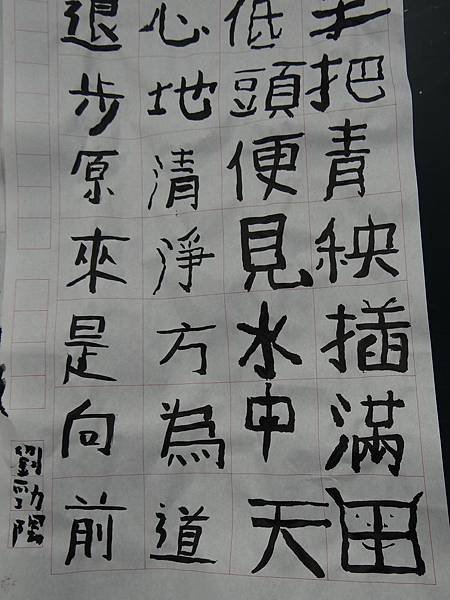 手把青秧插滿田
低頭便見水中天
心地清淨方為道
退步原來是向前
劉勁